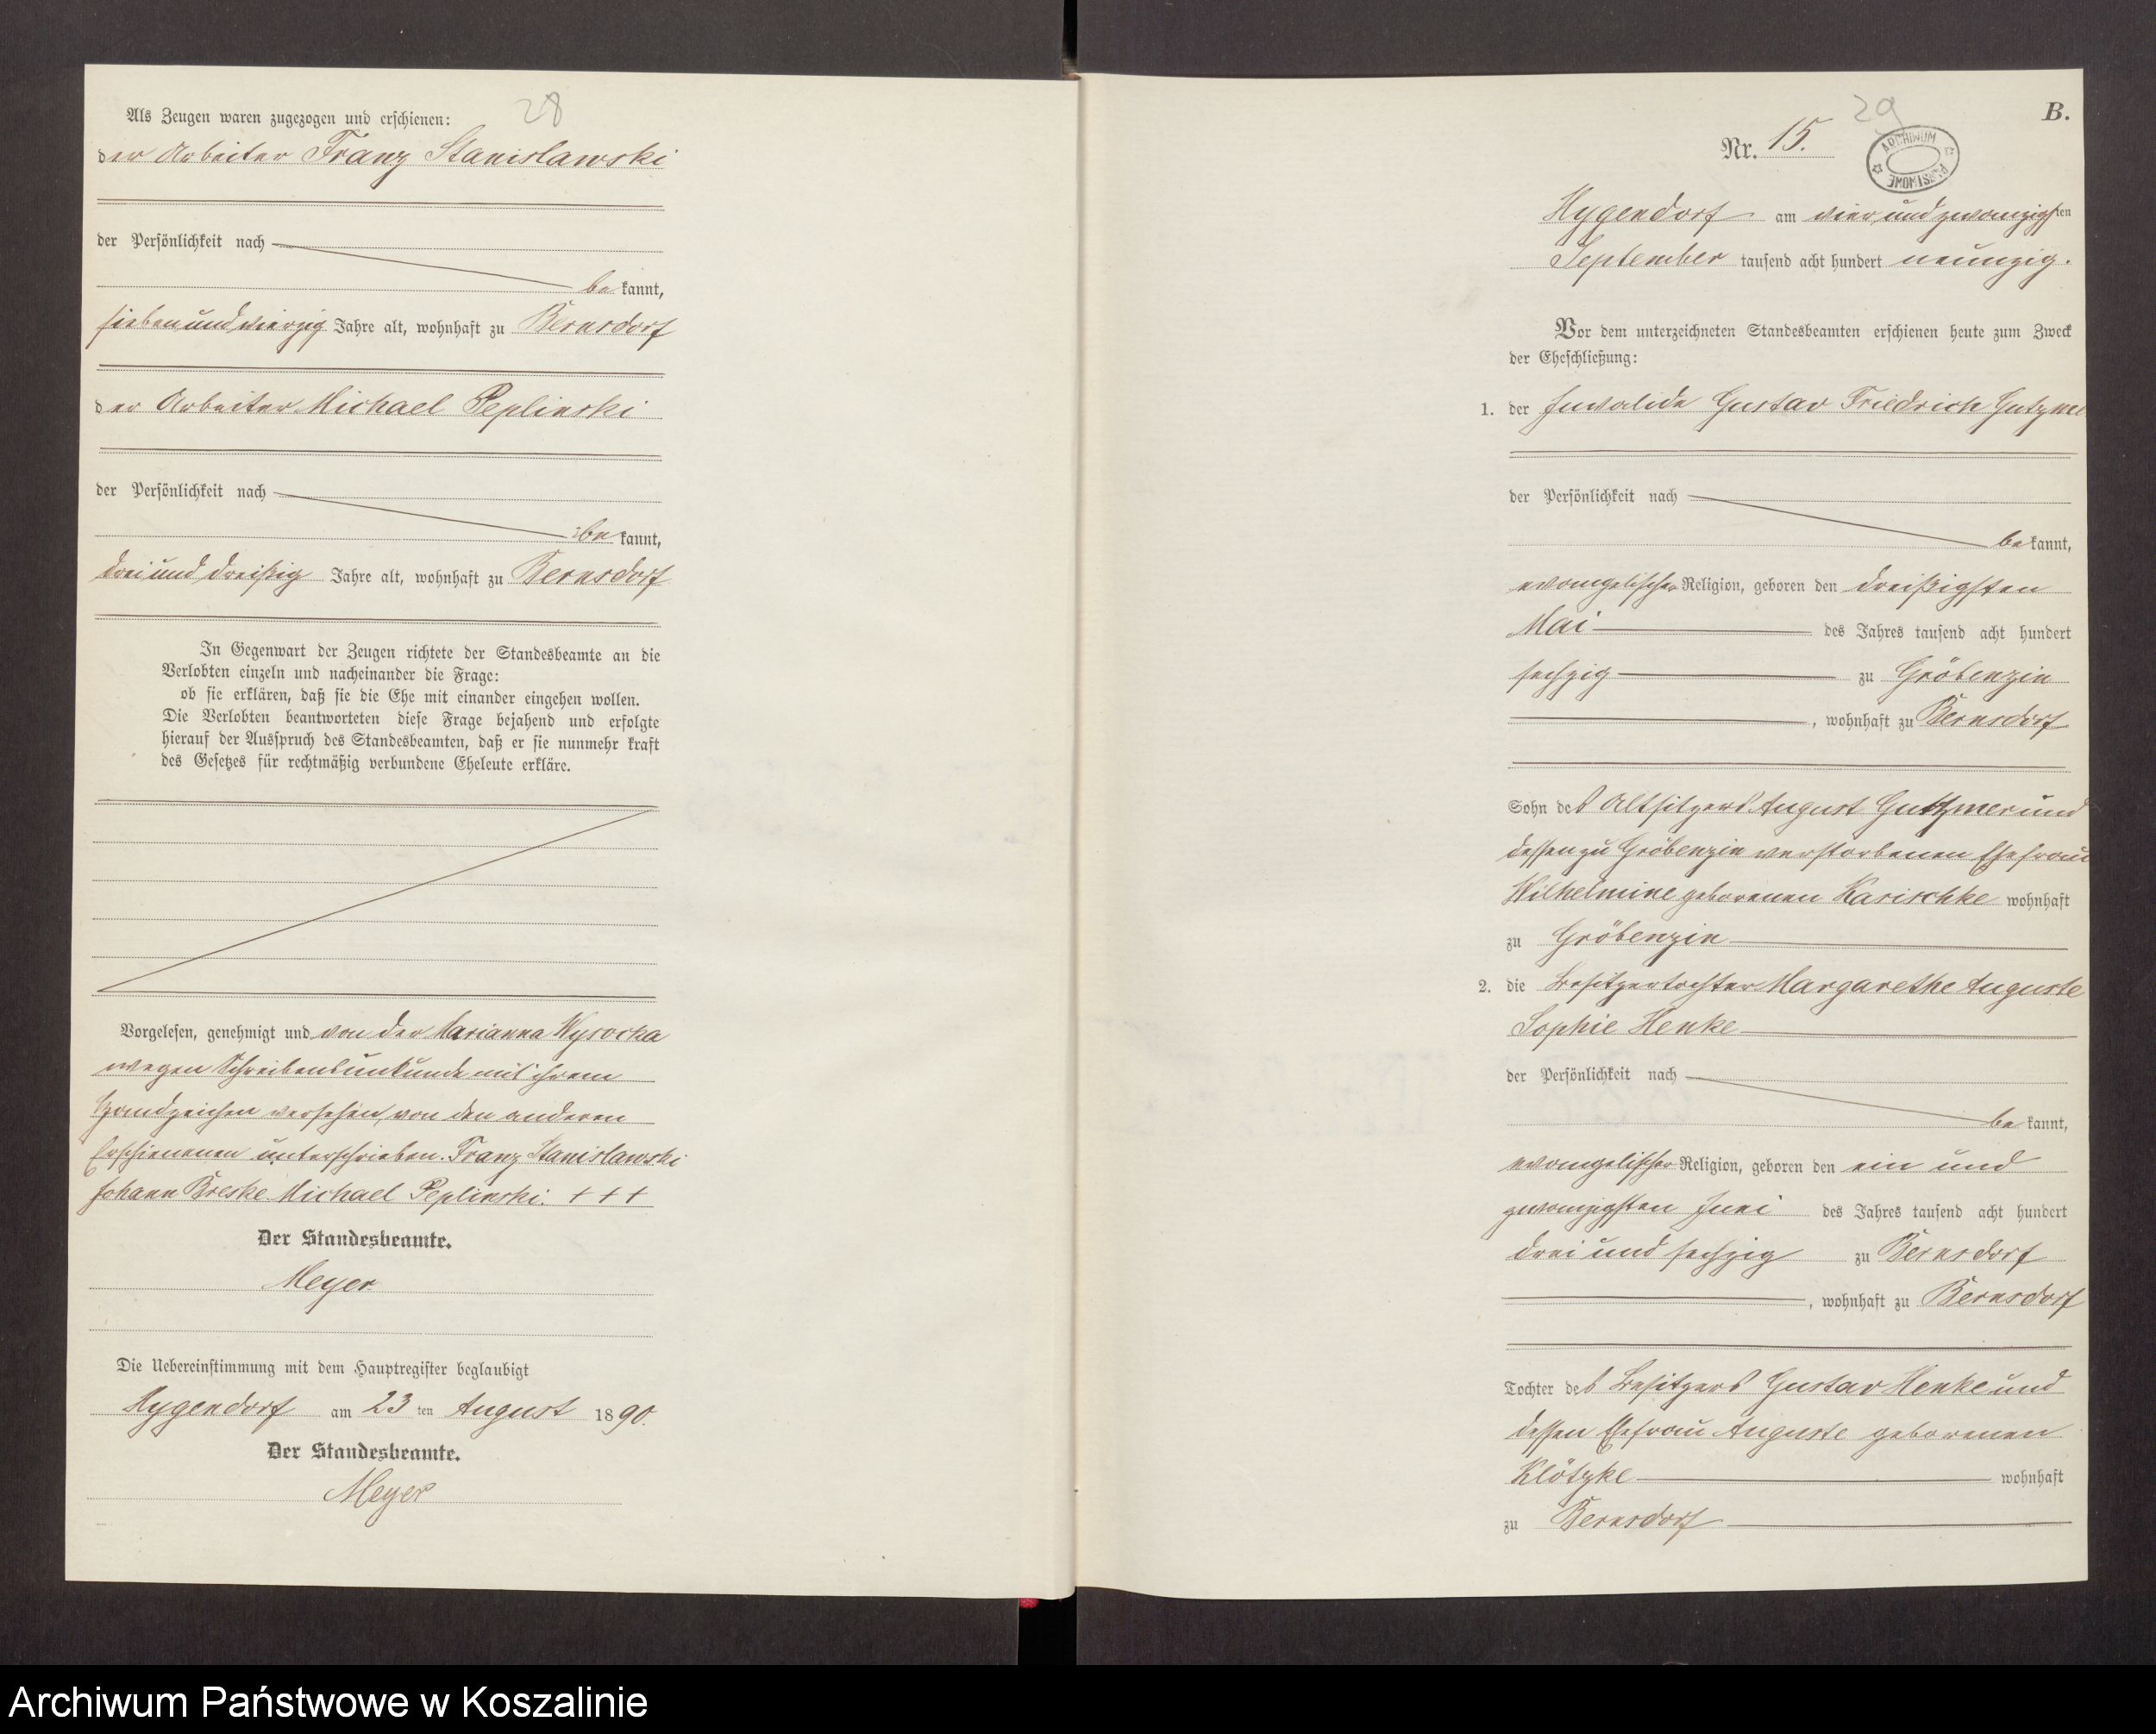 28
Als Zeugen waren zugezogen und erschienen:
der Arbeiter Franz Stanislawski
der Persönlichkeit nach
be kannt,
sieben und vierzig Jahre alt, wohnhaft zu Bernsdorf
der Arbeiter Michael Peplinski
der Persönlichkeit nach
be kannt,
drei und dreißig Jahre alt, wohnhaft zu Bernsdorf
In Gegenwart der Zeugen richtete der Standesbeamte an die
Verlobten einzeln und nacheinander die Frage:
ob sie erklären, daß sie die Ehe mit einander eingehen wollen.
Die Verlobten beantworteten diese Frage bejahend und erfolgte
hierauf der Ausspruch des Standesbeamten, daß er sie nunmehr kraft
des Gesetzes für rechtmäßig verbundene Eheleute erkläre.
Vorgelesen, genehmigt und von der Marianna Wysocka
wegen Schreibensunkunde mit ihrem
Handzeichen versehen, von den anderen
Erschienenen unterschrieben. Franz Stanislawski
Johann Breske. Michael Peplinski. + + +
Der Standesbeamte.
Meyer
Die Uebereinstimmung mit dem Hauptregister beglaubigt
Hygendorf am 23 ten August 1890.
Der Standesbeamte.
Meyer
29
B.
Nr. 15.
ARCHIWUM PAŃSTWOWE
Hygendorf am vier und zwanzigsten
September tausend acht hundert neunzig.
Vor dem unterzeichneten Standesbeamten erschienen heute zum Zweck
der Eheschließung:
1. der Invalide Gustav Friedrich Gutzmer
der Persönlichkeit nach
be kannt,
evangelischer Religion, geboren den dreißigsten
Mai des Jahres tausend acht hundert
sechzig zu Gröbenzin
, wohnhaft zu Bernsdorf
Sohn des Altsitzers August Gutzmer und
dessen zu Gröbenzin verstorbenen Ehefrau
Wilhelmine geborenen Karischke wohnhaft
zu Gröbenzin
2. die Besitzertochter Margarethe Auguste
Sophie Henke
der Persönlichkeit nach
be kannt,
evangelischer Religion, geboren den ein und
zwanzigsten Juni des Jahres tausend acht hundert
drei und sechzig zu Bernsdorf
, wohnhaft zu Bernsdorf
Tochter des Besitzers Gustav Henke und
dessen Ehefrau Auguste geborenen
Klötzke wohnhaft
zu Bernsdorf
Archiwum Państwowe w Koszalinie